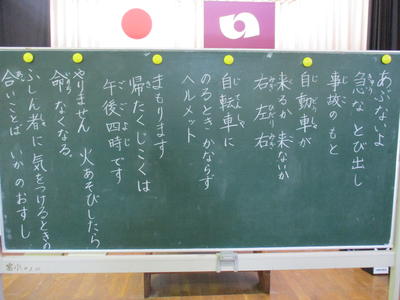 あぶないよ
急な とび出し
事故のもと
自動車が
来るか 来ないか
右 左 右
自転車に
のるとき かならず
ヘルメット
まもります
帰たくじこくは
午後四時です
やりません 火あそびしたら
命 なくなる
ふしん者に 気をつけるときの
合いことば いかのおすし